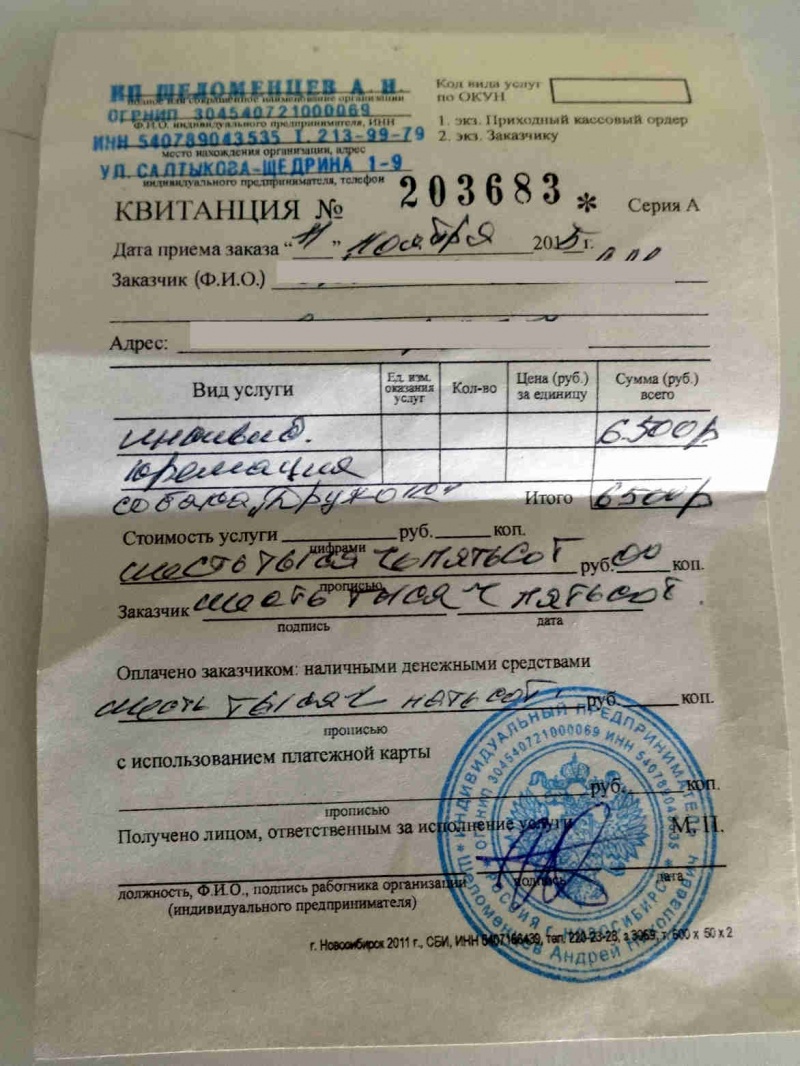 ИП ШЕЛОМЕНЦЕВ А. Н.
полное или сокращенное наименование организации
ОГРНИП 304540721000069
Ф.И.О. индивидуального предпринимателя, ИНН
ИНН 540789043535 Т. 213-99-79
место нахождения организации, адрес
УЛ. САЛТЫКОВА-ЩЕДРИНА 1-9
индивидуального предпринимателя, телефон
Код вида услуг
по ОКУН
1. экз. Приходный кассовый ордер
2. экз. Заказчику
КВИТАНЦИЯ № 203683 * Серия А
Дата приема заказа “11” ноября 2015 г.
Заказчик (Ф.И.О.)
Адрес:
Вид услуги Ед. изм. оказания услуг Кол-во Цена (руб.) за единицу Сумма (руб.) всего
индивид. 6500р
кремация
собака Итого 6500р
Стоимость услуги руб. коп.
цифрами
шесть тысяч пятьсот руб. 00 коп.
прописью
Заказчик шесть тысяч пятьсот
подпись дата
Оплачено заказчиком: наличными денежными средствами
шесть тысяч пятьсот руб. коп.
прописью
с использованием платежной карты
руб. коп.
прописью
Получено лицом, ответственным за исполнение услуги М. П.
подпись дата
должность, Ф.И.О., подпись работника организации
(индивидуального предпринимателя)
г. Новосибирск 2011 г., СБИ, ИНН 5407166439, тел. 220-23-28, з.3059, т. 500 х 50 х 2
* ИНДИВИДУАЛЬНЫЙ ПРЕДПРИНИМАТЕЛЬ *
Шеломенцев Андрей Николаевич
ОГРНИП 304540721000069 ИНН 540789043535
РОССИЯ Г. НОВОСИБИРСК